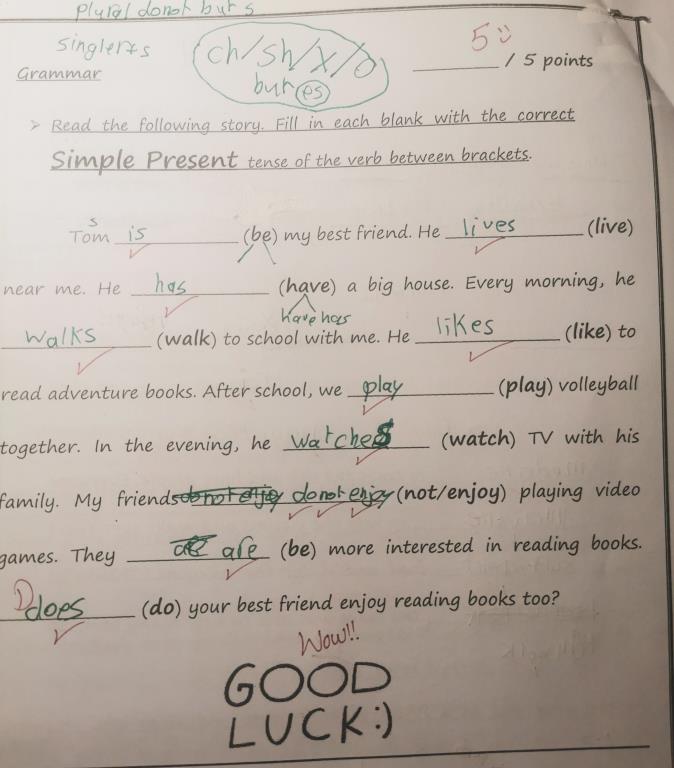 plural donot but s
singler+s
ch/sh/x/o
but es
5
Grammar
/ 5 points
➢ Read the following story. Fill in each blank with the correct
Simple Present tense of the verb between brackets.
s
Tom is (be) my best friend. He lives (live)
near me. He has (have) a big house. Every morning, he
have has
walks (walk) to school with me. He likes (like) to
read adventure books. After school, we play (play) volleyball
together. In the evening, he watches (watch) TV with his
family. My friends do not enjoy do not enjoy (not/enjoy) playing video
games. They are (be) more interested in reading books.
D does (do) your best friend enjoy reading books too?
Wow!!
GOOD
LUCK:)